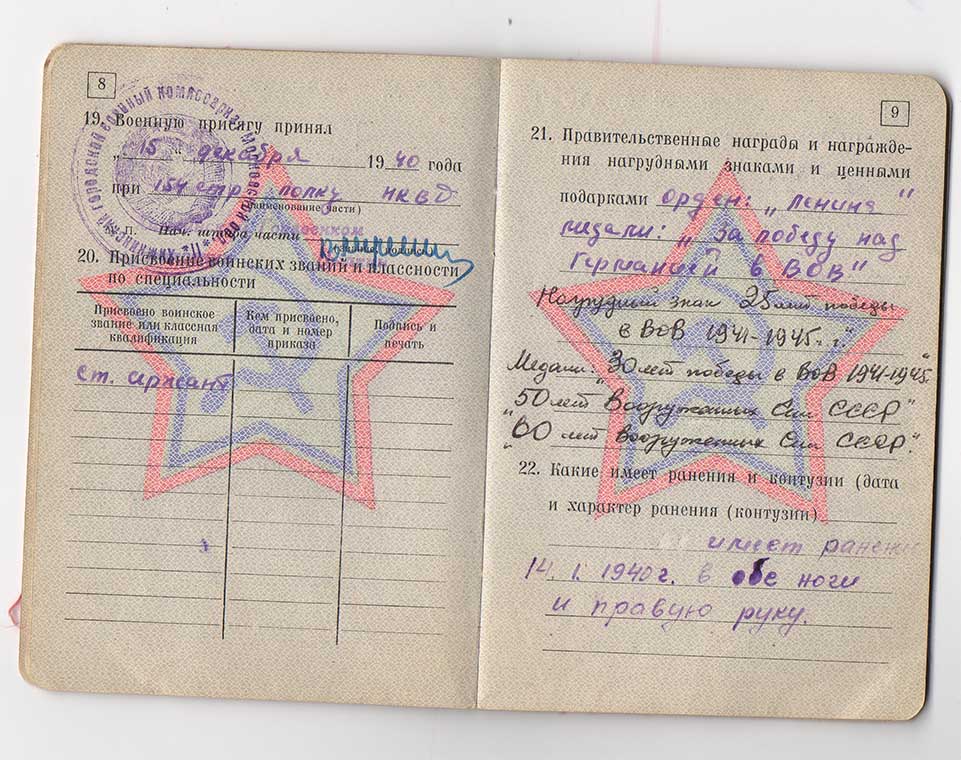 8
19. Военную присягу принял
„ 15 " декабря 1940 года
при 154 стр полку НКВД
(наименование части)
М. П. Нач. штаба части
20. Присвоение воинских званий и классности
по специальности
Присвоено воинское
звание или классная
квалификация
Кем присвоено,
дата и номер
приказа
Подпись и
печать
Ст. сржант
9
21. Правительственные награды и награжде-
ния нагрудными знаками и ценными
подарками орден: „Ленина"
медали: „За победу над
Германией в ВОВ"
Нагрудный знак 25 лет победы
в ВОВ 1941-1945 г.г."
Медали: "30 лет победы в ВОВ 1941-1945"
"50 лет Вооруженных Сил СССР"
"60 лет Вооруженных Сил СССР".
22. Какие имеет ранения и контузии (дата
и характер ранения (контузии)
имеет ранени
14. I. 1940 г. в обе ноги
и правую руку.